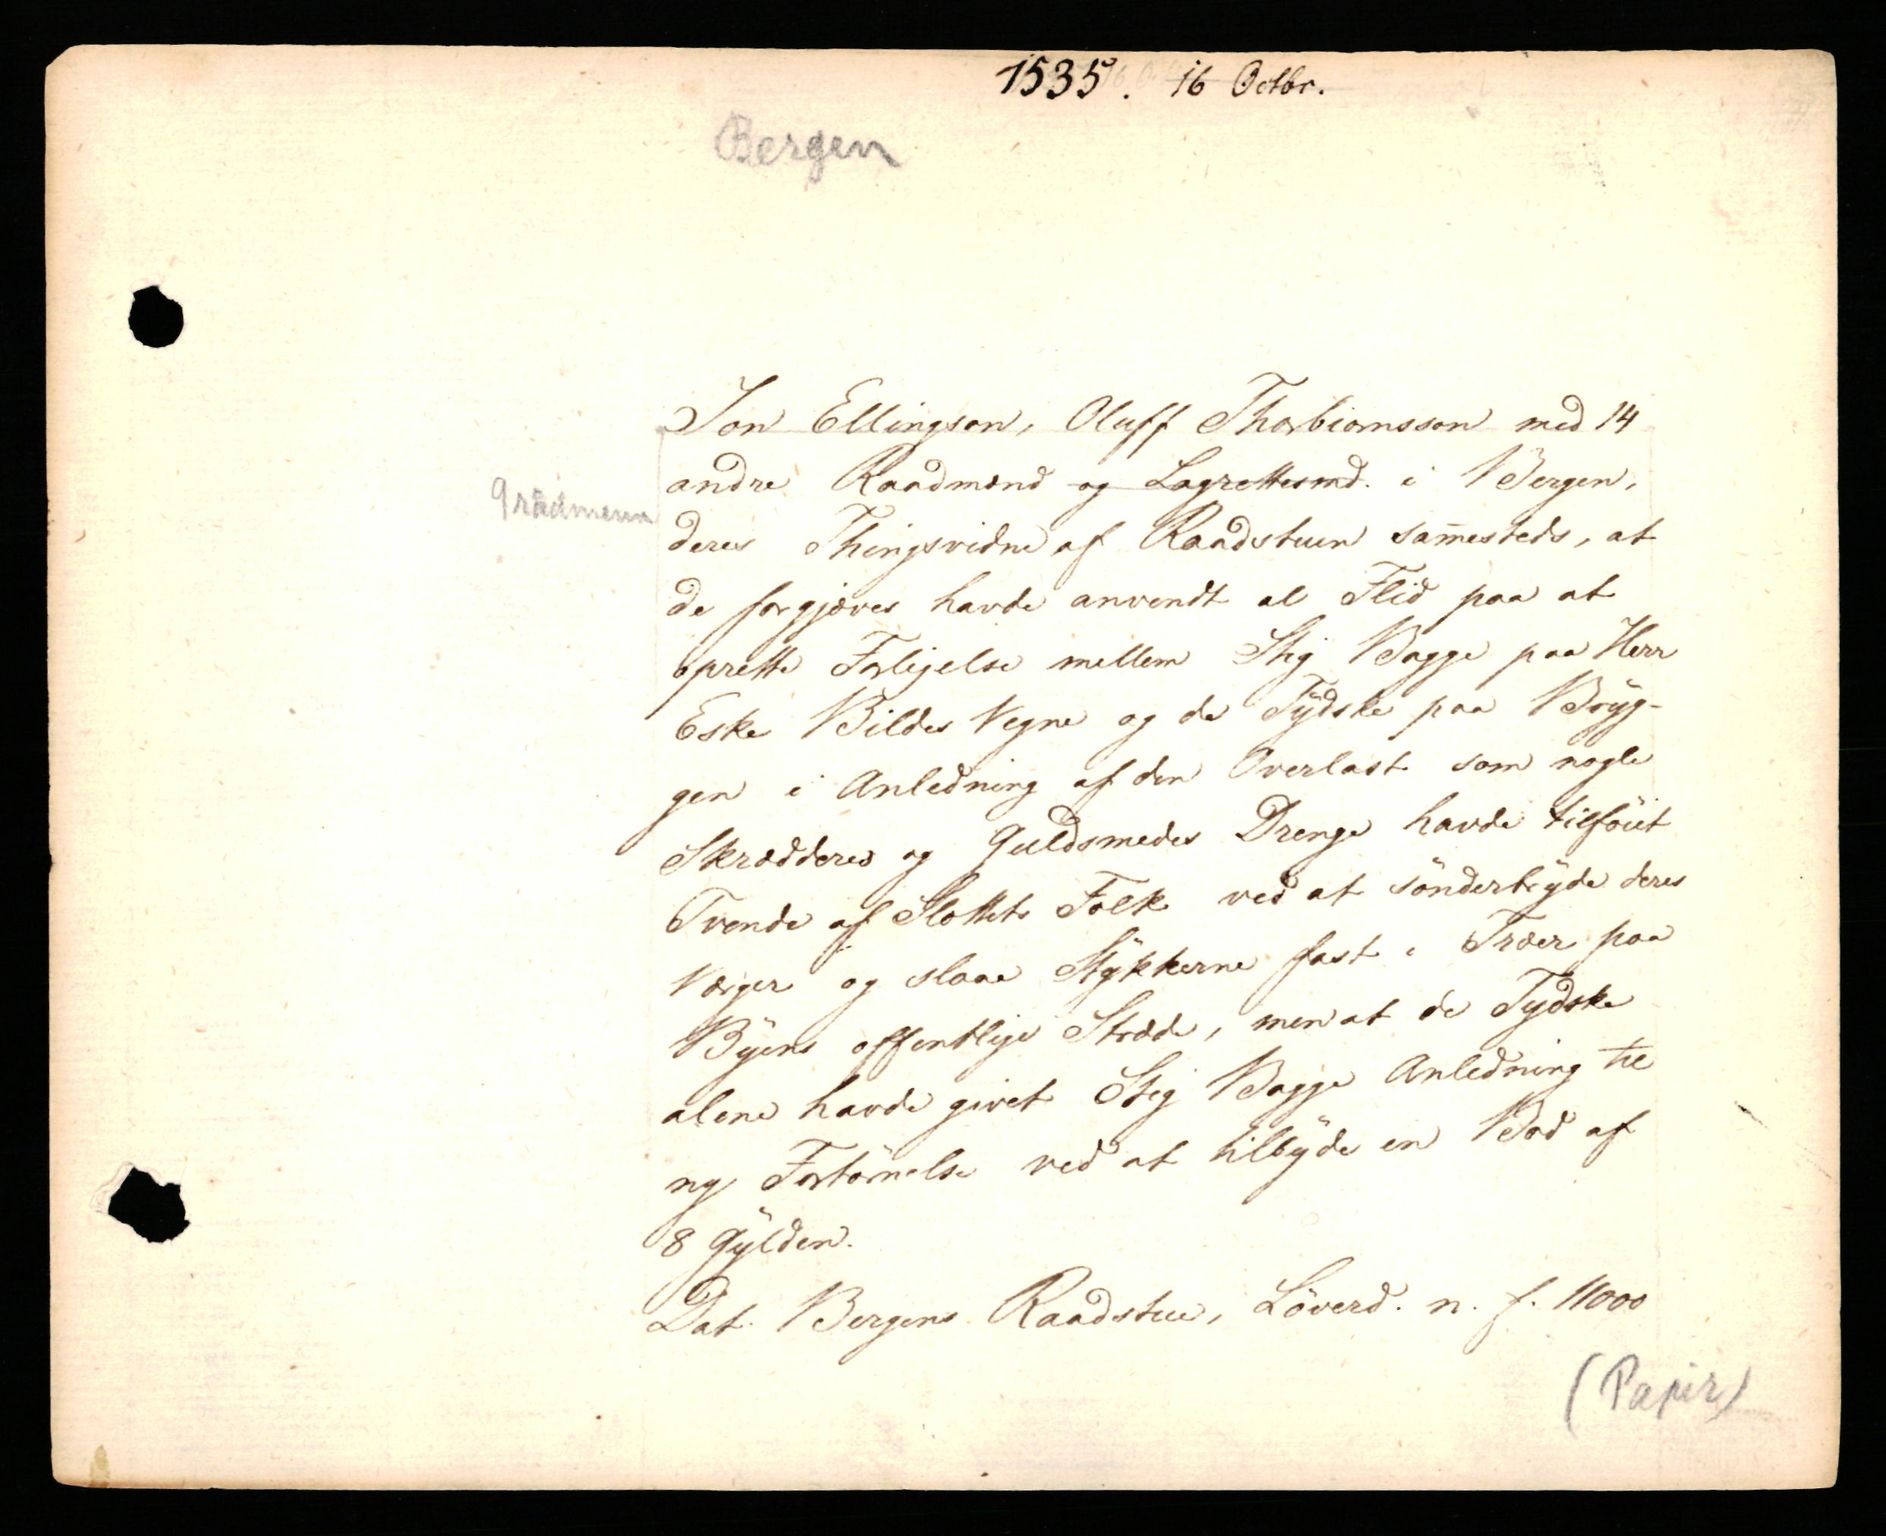 1535. 16 Octbr.
Bergen
Jon Ellingson, Oluff Thorbiornsson med 14
andre Raadmænd og Lagrettesmd. i Bergen,
9 rådmenn
deres Thingsvidne af Raadstuen sam̄esteds, at
de forgjæves havde anvendt al Flid paa at
oprette Forligelse mellem Stig Bagge paa Herr
Eske Bildes Vegne og de Tÿdske paa Brÿg-
gen i Anledning af den Overlast som nogle
Skrædderes og Guldsmedes Drenge havde tilföiet
Tvende af Slottets Folk ved at sönderbrÿde deres
Værger og slaae Stÿkkerne fast i Træer paa
Bÿens offentlige Stræde, men at de Tydske
alene havde givet Stig Bagge Anledning til
ny Fortörnelse ved at tilbÿde en Bod af
8 Gÿlden.
Dat. Bergens Raadstue, Löverd. n. f. 11000
(Papir)